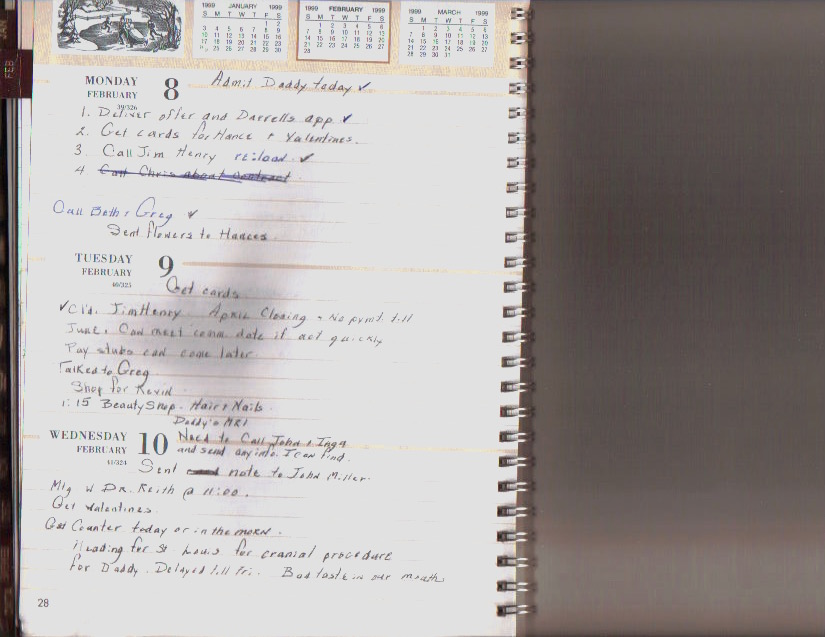 1999 JANUARY 1999
S M T W T F S
1 2
3 4 5 6 7 8 9
10 11 12 13 14 15 16
17 18 19 20 21 22 23
25 26 27 28 29 30
1999 FEBRUARY 1999
S M T W T F S
1 2 3 4 5 6
7 8 9 10 11 12 13
14 15 16 17 18 19 20
21 22 23 24 25 26 27
28
1999 MARCH 1999
S M T W T F S
1 2 3 4 5 6
7 8 9 10 11 12 13
14 15 16 17 18 19 20
21 22 23 24 25 26 27
28 29 30 31
FEB
MONDAY 8 Admit Daddy today ✓
FEBRUARY
39/326
1. Deliver offer and Darrells app ✓
2. Get cards for Hance + Valentines.
3. Call Jim Henry re: loan. ✓
4 Call Chris about contract.
Call Beth & Greg ✓
Sent flowers to Hances.
TUESDAY 9
FEBRUARY
40/325
Get cards
✓ Cl'd. Jim Henry April Closing - No pymt. till
June. Can meet comm. date if act quickly
Pay stubs can come later.
Talked to Greg
Shop for Kevin.
1:15 Beauty Shop - Hair & Nails.
Daddy's MRI
WEDNESDAY 10 Need to Call John & Inga
FEBRUARY and send any info. I can find.
41/324
Sent note to John Miller.
Mtg w DR. Keith @ 11:00.
Get Valentines.
Get Counter today or in the morn.
Heading for St Louis for cranial procedure
for Daddy. Delayed till Fri. Bad taste in our mouth.
28